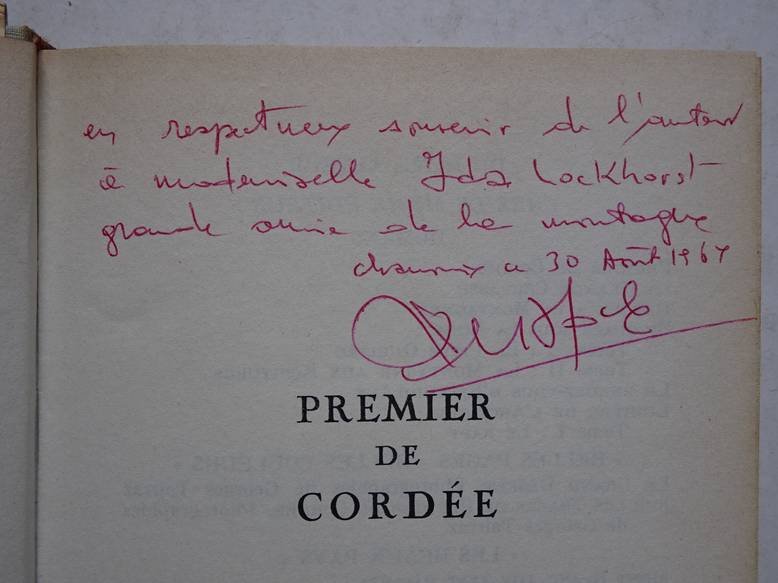 en respectueux souvenir de l'auteur
à mademoiselle Ida Lockhorst
grande amie de la montagne
chamonix le 30 Août 1967
PREMIER
DE
CORDÉE